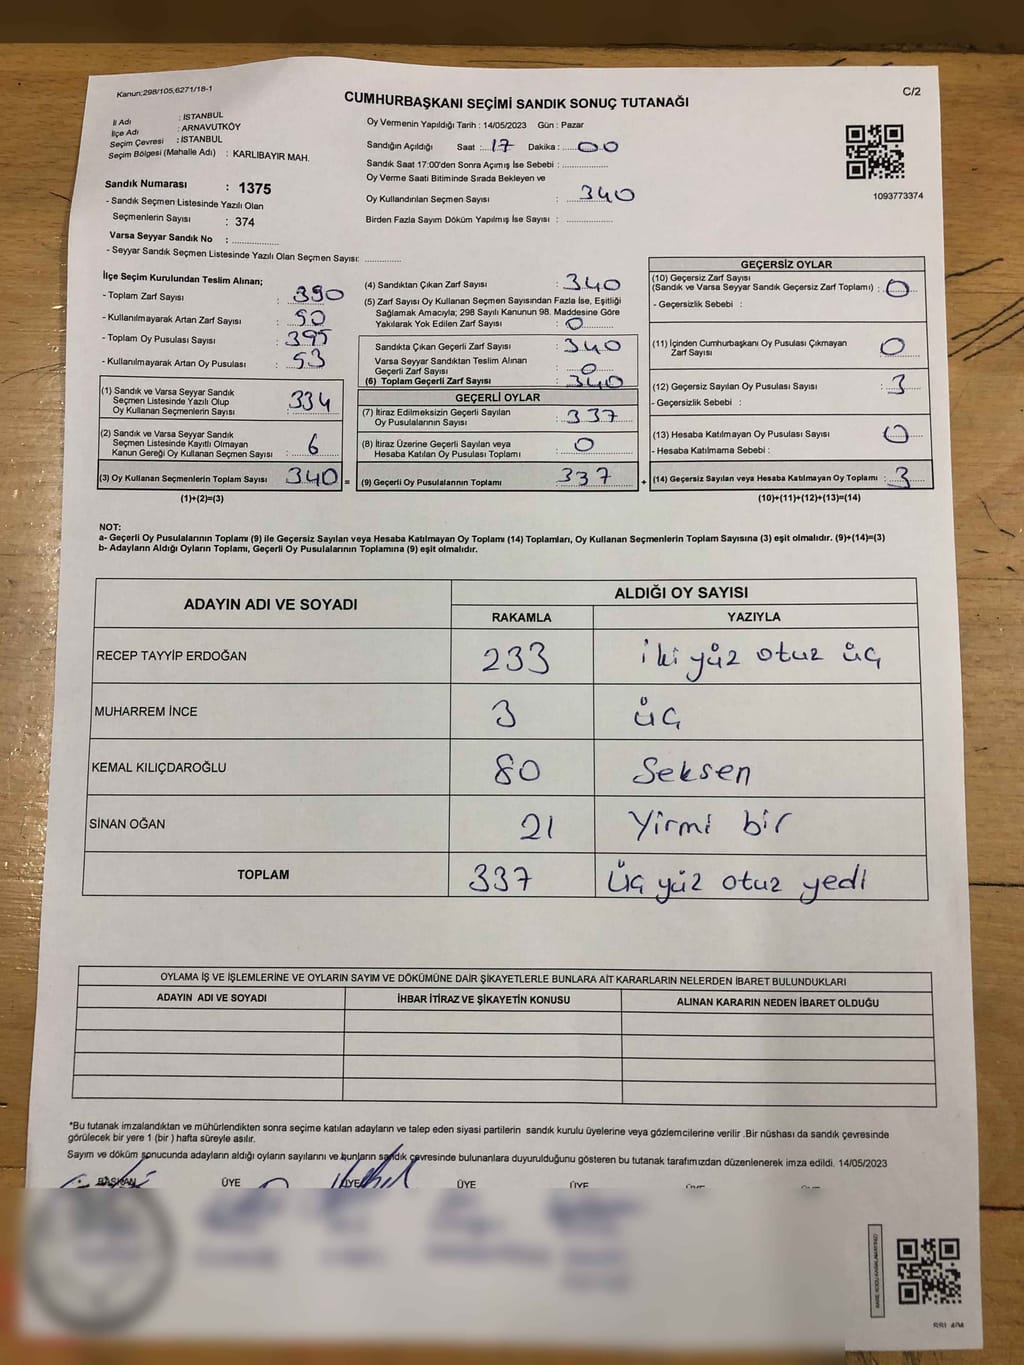 Kanun;298/105,6271/18-1
C/2
CUMHURBAŞKANI SEÇİMİ SANDIK SONUÇ TUTANAĞI
İl Adı : İSTANBUL
İlçe Adı : ARNAVUTKÖY
Seçim Çevresi : İSTANBUL
Seçim Bölgesi (Mahalle Adı) : KARLIBAYIR MAH.
Sandık Numarası : 1375
- Sandık Seçmen Listesinde Yazılı Olan
Seçmenlerin Sayısı : 374
Varsa Seyyar Sandık No : ..............
- Seyyar Sandık Seçmen Listesinde Yazılı Olan Seçmen Sayısı: ............
Oy Vermenin Yapıldığı Tarih : 14/05/2023 Gün : Pazar
Sandığın Açıldığı Saat : 17 Dakika : 00
Sandık Saat 17:00'den Sonra Açımış İse Sebebi : ..............
Oy Verme Saati Bitiminde Sırada Bekleyen ve
Oy Kullandırılan Seçmen Sayısı : 340
Birden Fazla Sayım Döküm Yapılmış İse Sayısı : ..............
1093773374
İlçe Seçim Kurulundan Teslim Alınan;
- Toplam Zarf Sayısı : 390
- Kullanılmayarak Artan Zarf Sayısı : 50
- Toplam Oy Pusulası Sayısı : 395
- Kullanılmayarak Artan Oy Pusulası : 53
(1) Sandık ve Varsa Seyyar Sandık
Seçmen Listesinde Yazılı Olup
Oy Kullanan Seçmenlerin Sayısı : 334
(2) Sandık ve Varsa Seyyar Sandık
Seçmen Listesinde Kayıtlı Olmayan
Kanun Gereği Oy Kullanan Seçmen Sayısı : 6
(3) Oy Kullanan Seçmenlerin Toplam Sayısı : 340 =
(1)+(2)=(3)
(4) Sandıktan Çıkan Zarf Sayısı : 340
(5) Zarf Sayısı Oy Kullanan Seçmen Sayısından Fazla İse, Eşitliği
Sağlamak Amacıyla; 298 Sayılı Kanunun 98. Maddesine Göre
Yakılarak Yok Edilen Zarf Sayısı : 0
Sandıkta Çıkan Geçerli Zarf Sayısı : 340
Varsa Seyyar Sandıktan Teslim Alınan
Geçerli Zarf Sayısı : 0
(6) Toplam Geçerli Zarf Sayısı : 340
GEÇERLİ OYLAR
(7) İtiraz Edilmeksizin Geçerli Sayılan
Oy Pusulalarının Sayısı : 337
(8) İtiraz Üzerine Geçerli Sayılan veya
Hesaba Katılan Oy Pusulası Toplamı : 0
(9) Geçerli Oy Pusulalarının Toplamı : 337 +
GEÇERSİZ OYLAR
(10) Geçersiz Zarf Sayısı
(Sandık ve Varsa Seyyar Sandık Geçersiz Zarf Toplamı) : 0
- Geçersizlik Sebebi :
(11) İçinden Cumhurbaşkanı Oy Pusulası Çıkmayan
Zarf Sayısı : 0
(12) Geçersiz Sayılan Oy Pusulası Sayısı : 3
- Geçersizlik Sebebi :
(13) Hesaba Katılmayan Oy Pusulası Sayısı : 0
- Hesaba Katılmama Sebebi :
(14) Geçersiz Sayılan veya Hesaba Katılmayan Oy Toplamı : 3
(10)+(11)+(12)+(13)=(14)
NOT:
a- Geçerli Oy Pusulalarının Toplamı (9) ile Geçersiz Sayılan veya Hesaba Katılmayan Oy Toplamı (14) Toplamları, Oy Kullanan Seçmenlerin Toplam Sayısına (3) eşit olmalıdır. (9)+(14)=(3)
b- Adayların Aldığı Oyların Toplamı, Geçerli Oy Pusulalarının Toplamına (9) eşit olmalıdır.
ADAYIN ADI VE SOYADI ALDIĞI OY SAYISI
RAKAMLA YAZIYLA
RECEP TAYYİP ERDOĞAN 233 iki yüz otuz üç
MUHARREM İNCE 3 üç
KEMAL KILIÇDAROĞLU 80 Seksen
SİNAN OĞAN 21 Yirmi bir
TOPLAM 337 Üç yüz otuz yedi
OYLAMA İŞ VE İŞLEMLERİNE VE OYLARIN SAYIM VE DÖKÜMÜNE DAİR ŞİKAYETLERLE BUNLARA AİT KARARLARIN NELERDEN İBARET BULUNDUKLARI
ADAYIN ADI VE SOYADI İHBAR İTİRAZ VE ŞİKAYETİN KONUSU ALINAN KARARIN NEDEN İBARET OLDUĞU
*Bu tutanak imzalandıktan ve mühürlendikten sonra seçime katılan adayların ve talep eden siyasi partilerin sandık kurulu üyelerine veya gözlemcilerine verilir .Bir nüshası da sandık çevresinde
görülecek bir yere 1 (bir ) hafta süreyle asılır.
Sayım ve döküm sonucunda adayların aldığı oyların sayılarını ve bunların sandık çevresinde bulunanlara duyurulduğunu gösteren bu tutanak tarafımızdan düzenlenerek imza edildi. 14/05/2023
BAŞKAN ÜYE ÜYE ÜYE ÜYE